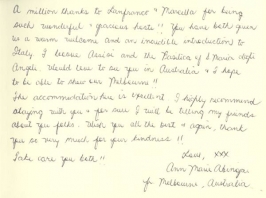 A million thanks to Lanfranco & Marcella for being
such wonderful & gracious hosts!! You have both given
us a warm welcome and an incredible introduction to
Italy. I Assisi and the Basilica of S. Maria degli
Angeli. Would love to see you in Australia & I hope
to be able to show our Melbourne!!
The accommodation here is excellent. I highly recommend
staying with you & for sure I will be telling my friends
about you folks. Wish you all the best & again, thank
you so very much for your kindness!!
Take care you both!!
Love, xxx
Ann Maria
Melbourne, Australia